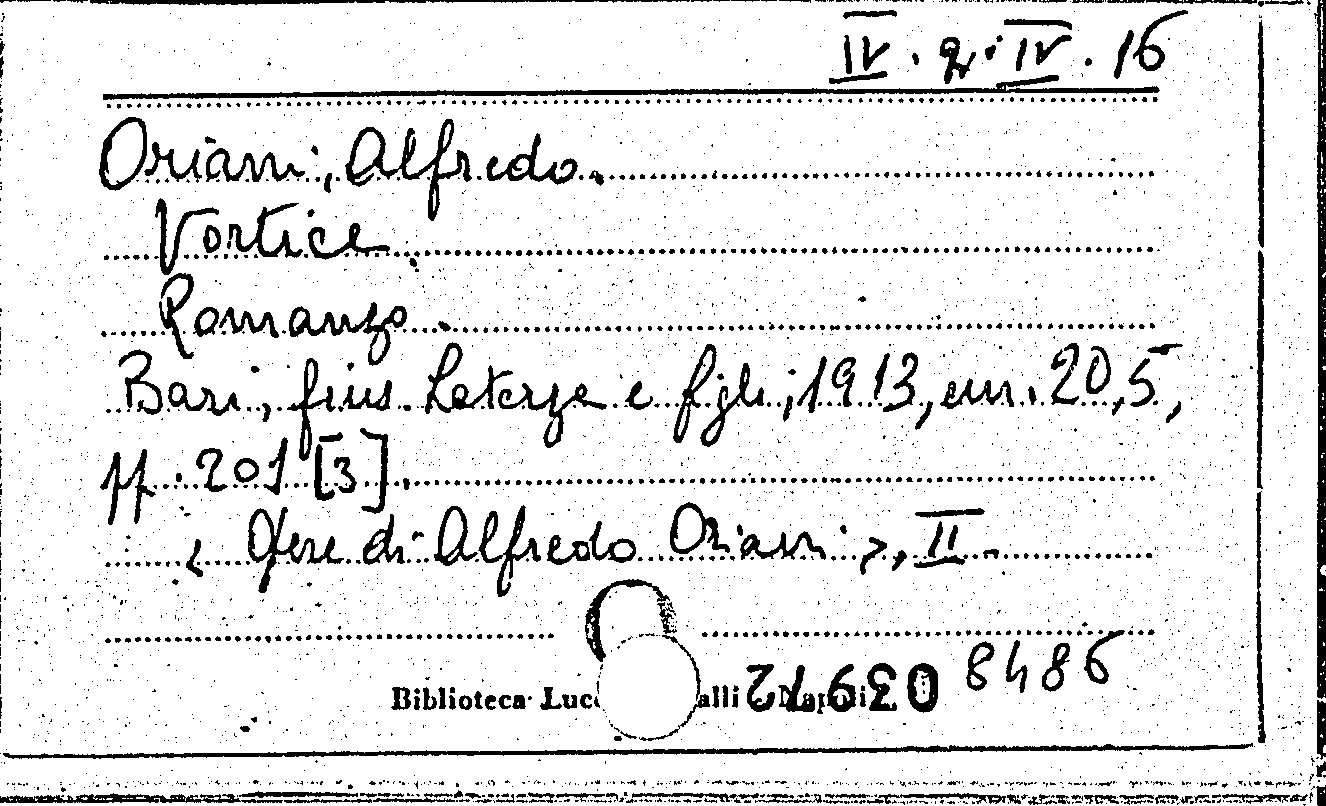 IV. qr. IV. 16
Oriani, Alfredo.
Vortice.
Romanzo.
Bari, Gius. Laterza e figli, 1913, cm. 20,5,
pp. 201 [3].
< Opere di Alfredo Oriani >, II.
8486
Biblioteca